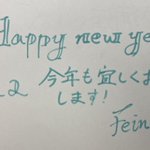 Happy new ye
2 今年も宜しくお
します!
Fein